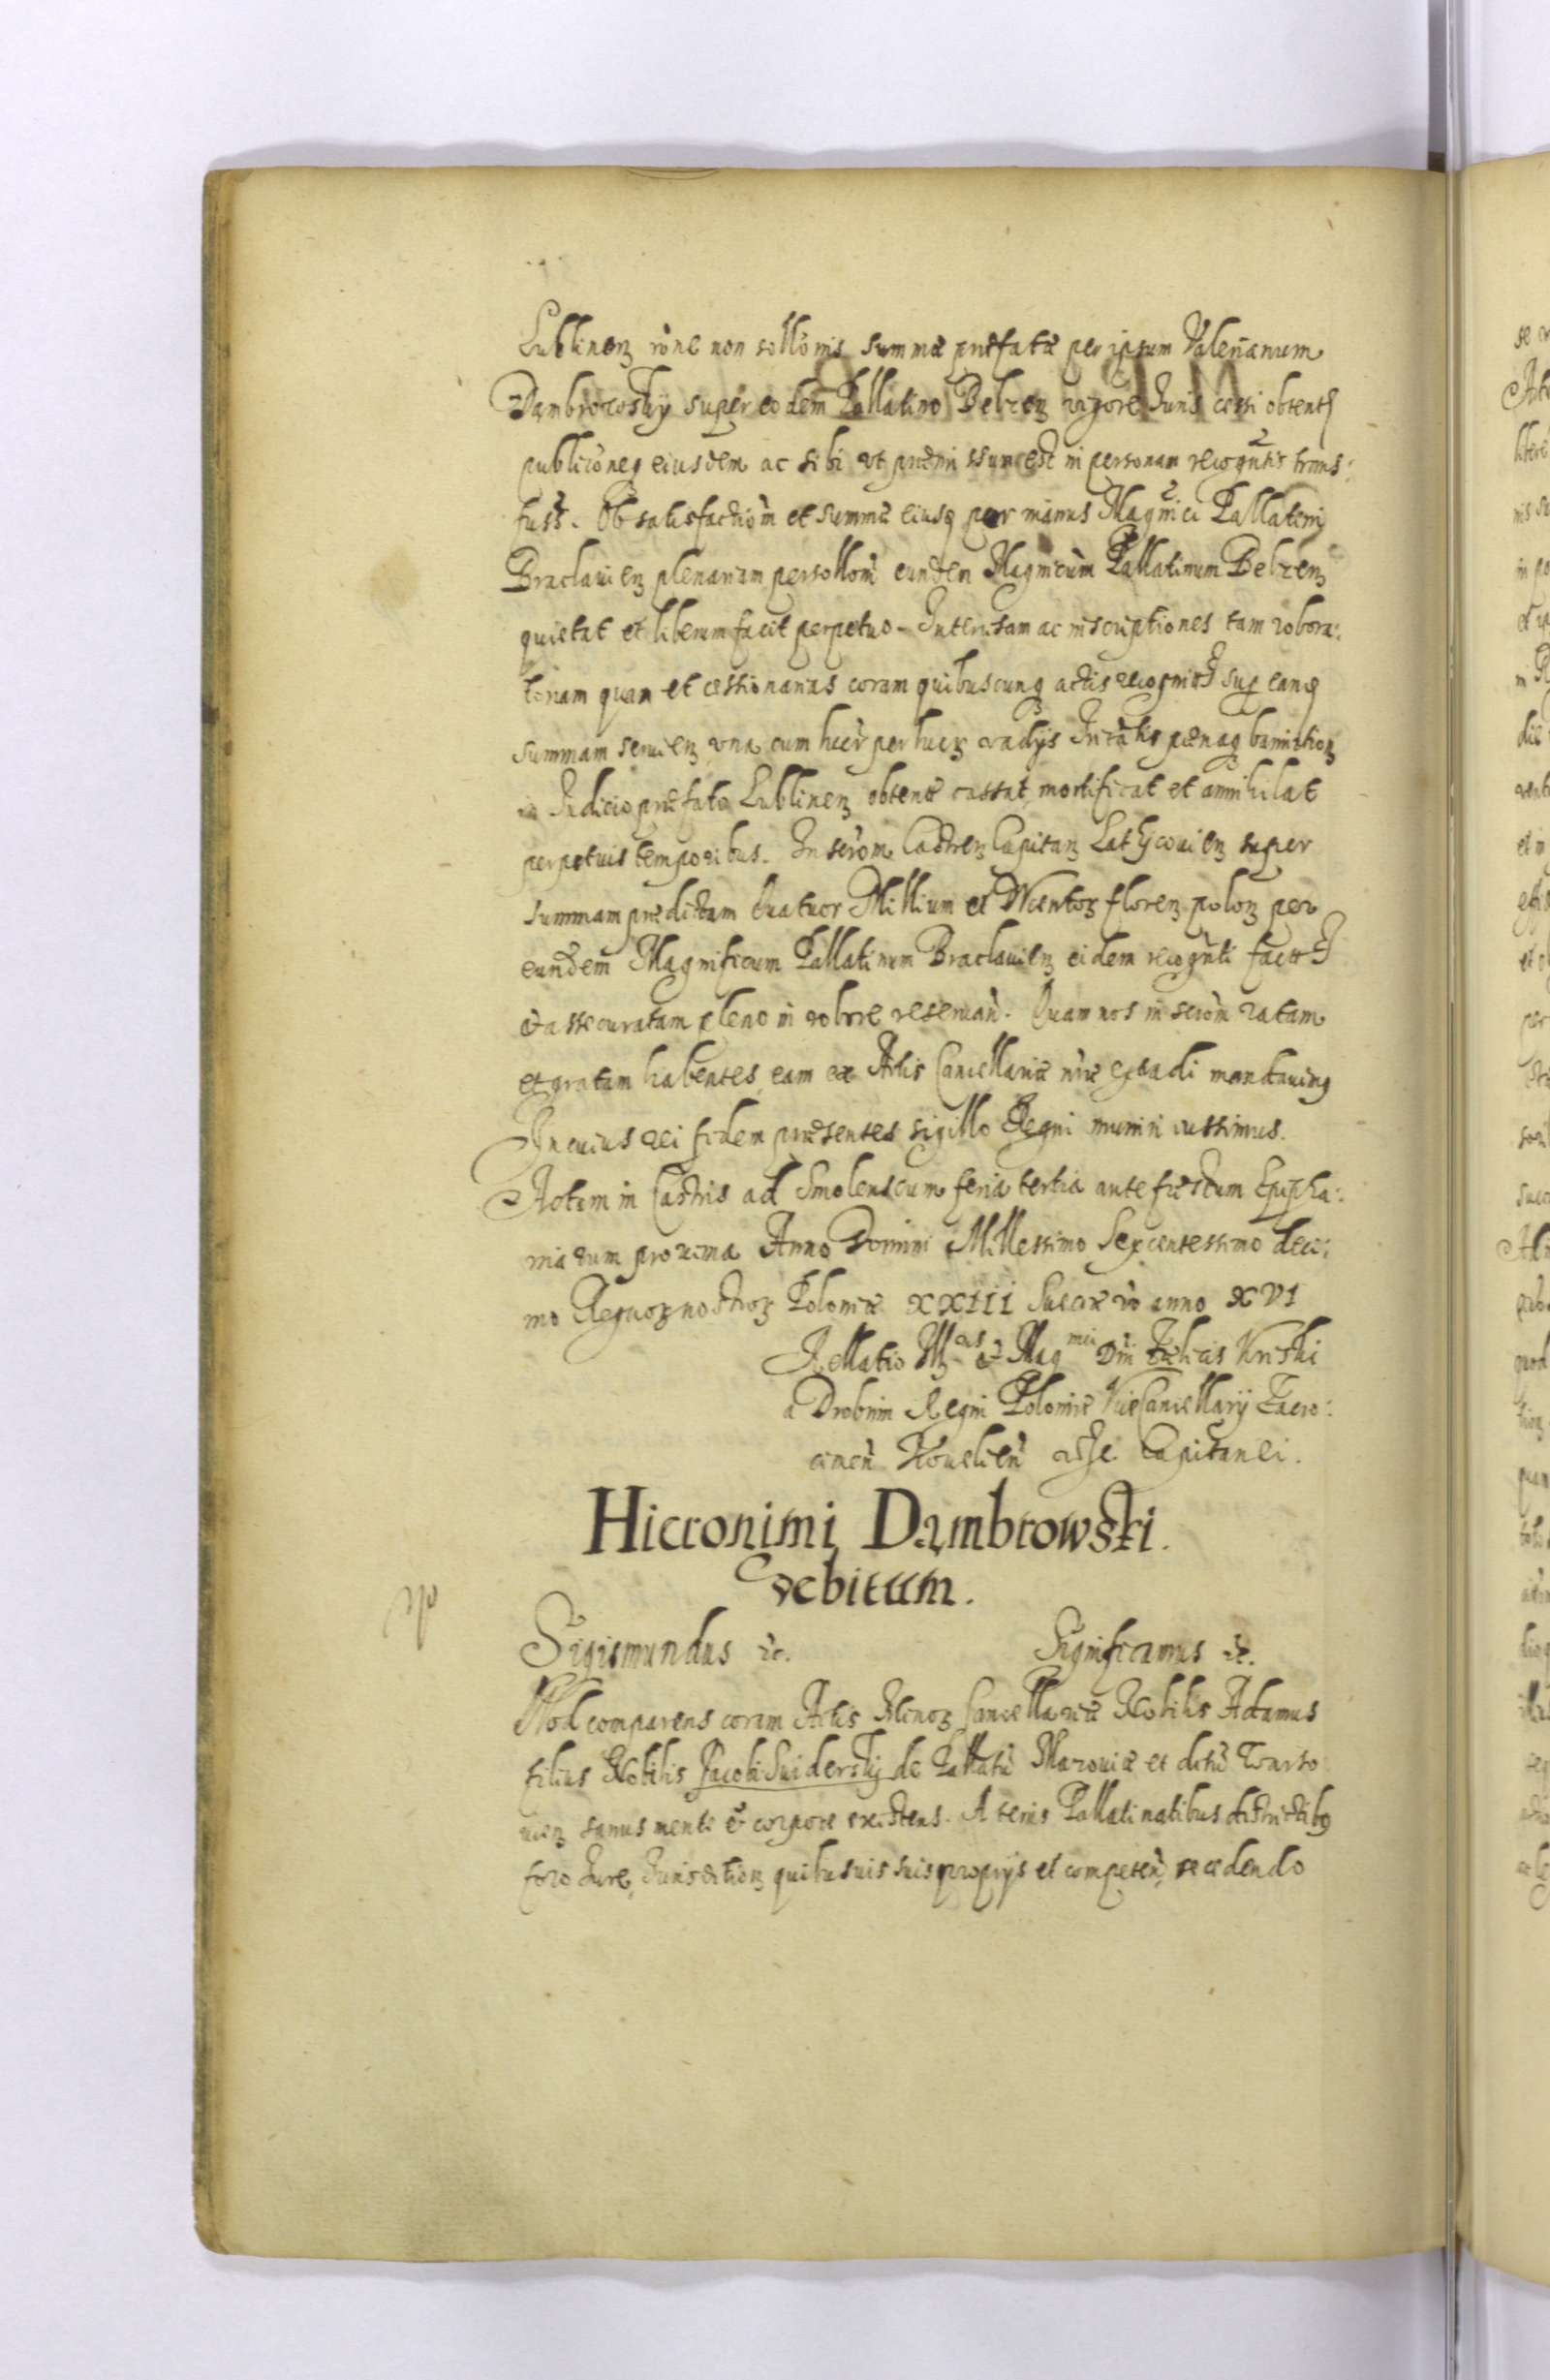 Lublinen rone non sollonis summæ præfatæ per ipsum Valerianum
Dambrowsky super eodem Pallatino Belzen vigore Juris cessi obtent
publiconeq eiusdem ac sibi vt præmissum est in personam recogntis trans:
fuss. Ob satisfactiom et summæ eiusq per manus Magnici Pallatini
Braclauien plenariam persollom eunden Magnicum Pallatinum Belzen
quietat et liberum facit perpetuo Intercisam ac inscriptiones tam robora:
toriam quam et cessionarias coram quibuscunq actis recognit sup eanq
summam seruien vna cum lucr perlucr vadys pænaq bannition
in Judicio præfato Lublinen obtent cassat mortificat et annihilat
perpetuis temporibus. Inscrom Castren Capitan Latycouien super
summam prædictam Quatuor Millium et Ducentor floren polon per
eundem Magnificum Pallatinum Braclauien eidem recognti fact
et assecuratam pleno in robore reseruan. Quam nos inscrom ratam
et gratam habentes eam ex Actis Cancellariæ nræ extradi mandauimq
In cuius rei fidem præsentes sigillo Regni muniri iussimus.
Actum in Castris ad Smolenscum feria tertia ante fæstum Epipha:
niarum proxima Anno Domini Millessimo Sexcentessimo deci:
mo Regnor nostror Poloniæ XXIII Sueciæ vo anno XVI
Rellatio Ill et Mag mci Dni Fælicis Kriski
a Drobnin Regni Poloniæ ViceCancellarij
Kouelien Capitanei.
Hieronimi Dambrowski
debitum.
Sigismundus etc. Significamus etc.
Quod comparens coram Actis Minor Cancellariæ Nobilis Adamus
filius Nobilis Jacobi Suidersky de Pallatu Mazouiæ et distu
sanus mente et corpore existens. A terris Pallatinatibus districtibq
foro Jure, Jurisdition quibusuis suis proprijs et competen, recedendo